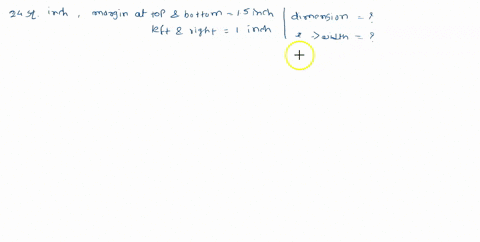 24 sq. inch, margin at top & bottom = 1.5 inch | dimension = ?
left & right = 1 inch | x → width = ?